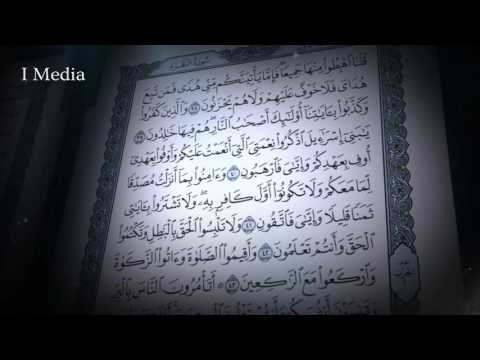 I Media
سُورَةُ البَقَرَةِ
قُلْنَا ٱهْبِطُوا۟ مِنْهَا جَمِيعًا فَإِمَّا يَأْتِيَنَّكُم مِّنِّى هُدًى فَمَن تَبِعَ
هُدَاىَ فَلَا خَوْفٌ عَلَيْهِمْ وَلَا هُمْ يَحْزَنُونَ ٣٨ وَٱلَّذِينَ كَفَرُوا۟
وَكَذَّبُوا۟ بِـَٔايَـٰتِنَآ أُو۟لَـٰٓئِكَ أَصْحَـٰبُ ٱلنَّارِ هُمْ فِيهَا خَـٰلِدُونَ ٣٩
يَـٰبَنِىٓ إِسْرَٰٓءِيلَ ٱذْكُرُوا۟ نِعْمَتِىَ ٱلَّتِىٓ أَنْعَمْتُ عَلَيْكُمْ وَأَوْفُوا۟ بِعَهْدِىٓ
أُوفِ بِعَهْدِكُمْ وَإِيَّـٰىَ فَٱرْهَبُونِ ٤٠ وَءَامِنُوا۟ بِمَآ أَنزَلْتُ مُصَدِّقًا
لِّمَا مَعَكُمْ وَلَا تَكُونُوٓا۟ أَوَّلَ كَافِرٍۭ بِهِۦ وَلَا تَشْتَرُوا۟ بِـَٔايَـٰتِى
ثَمَنًا قَلِيلًا وَإِيَّـٰىَ فَٱتَّقُونِ ٤١ وَلَا تَلْبِسُوا۟ ٱلْحَقَّ بِٱلْبَـٰطِلِ وَتَكْتُمُوا۟
ٱلْحَقَّ وَأَنتُمْ تَعْلَمُونَ ٤٢ وَأَقِيمُوا۟ ٱلصَّلَوٰةَ وَءَاتُوا۟ ٱلزَّكَوٰةَ
وَٱرْكَعُوا۟ مَعَ ٱلرَّٰكِعِينَ ٤٣ أَتَأْمُرُونَ ٱلنَّاسَ بِٱلْبِرِّ